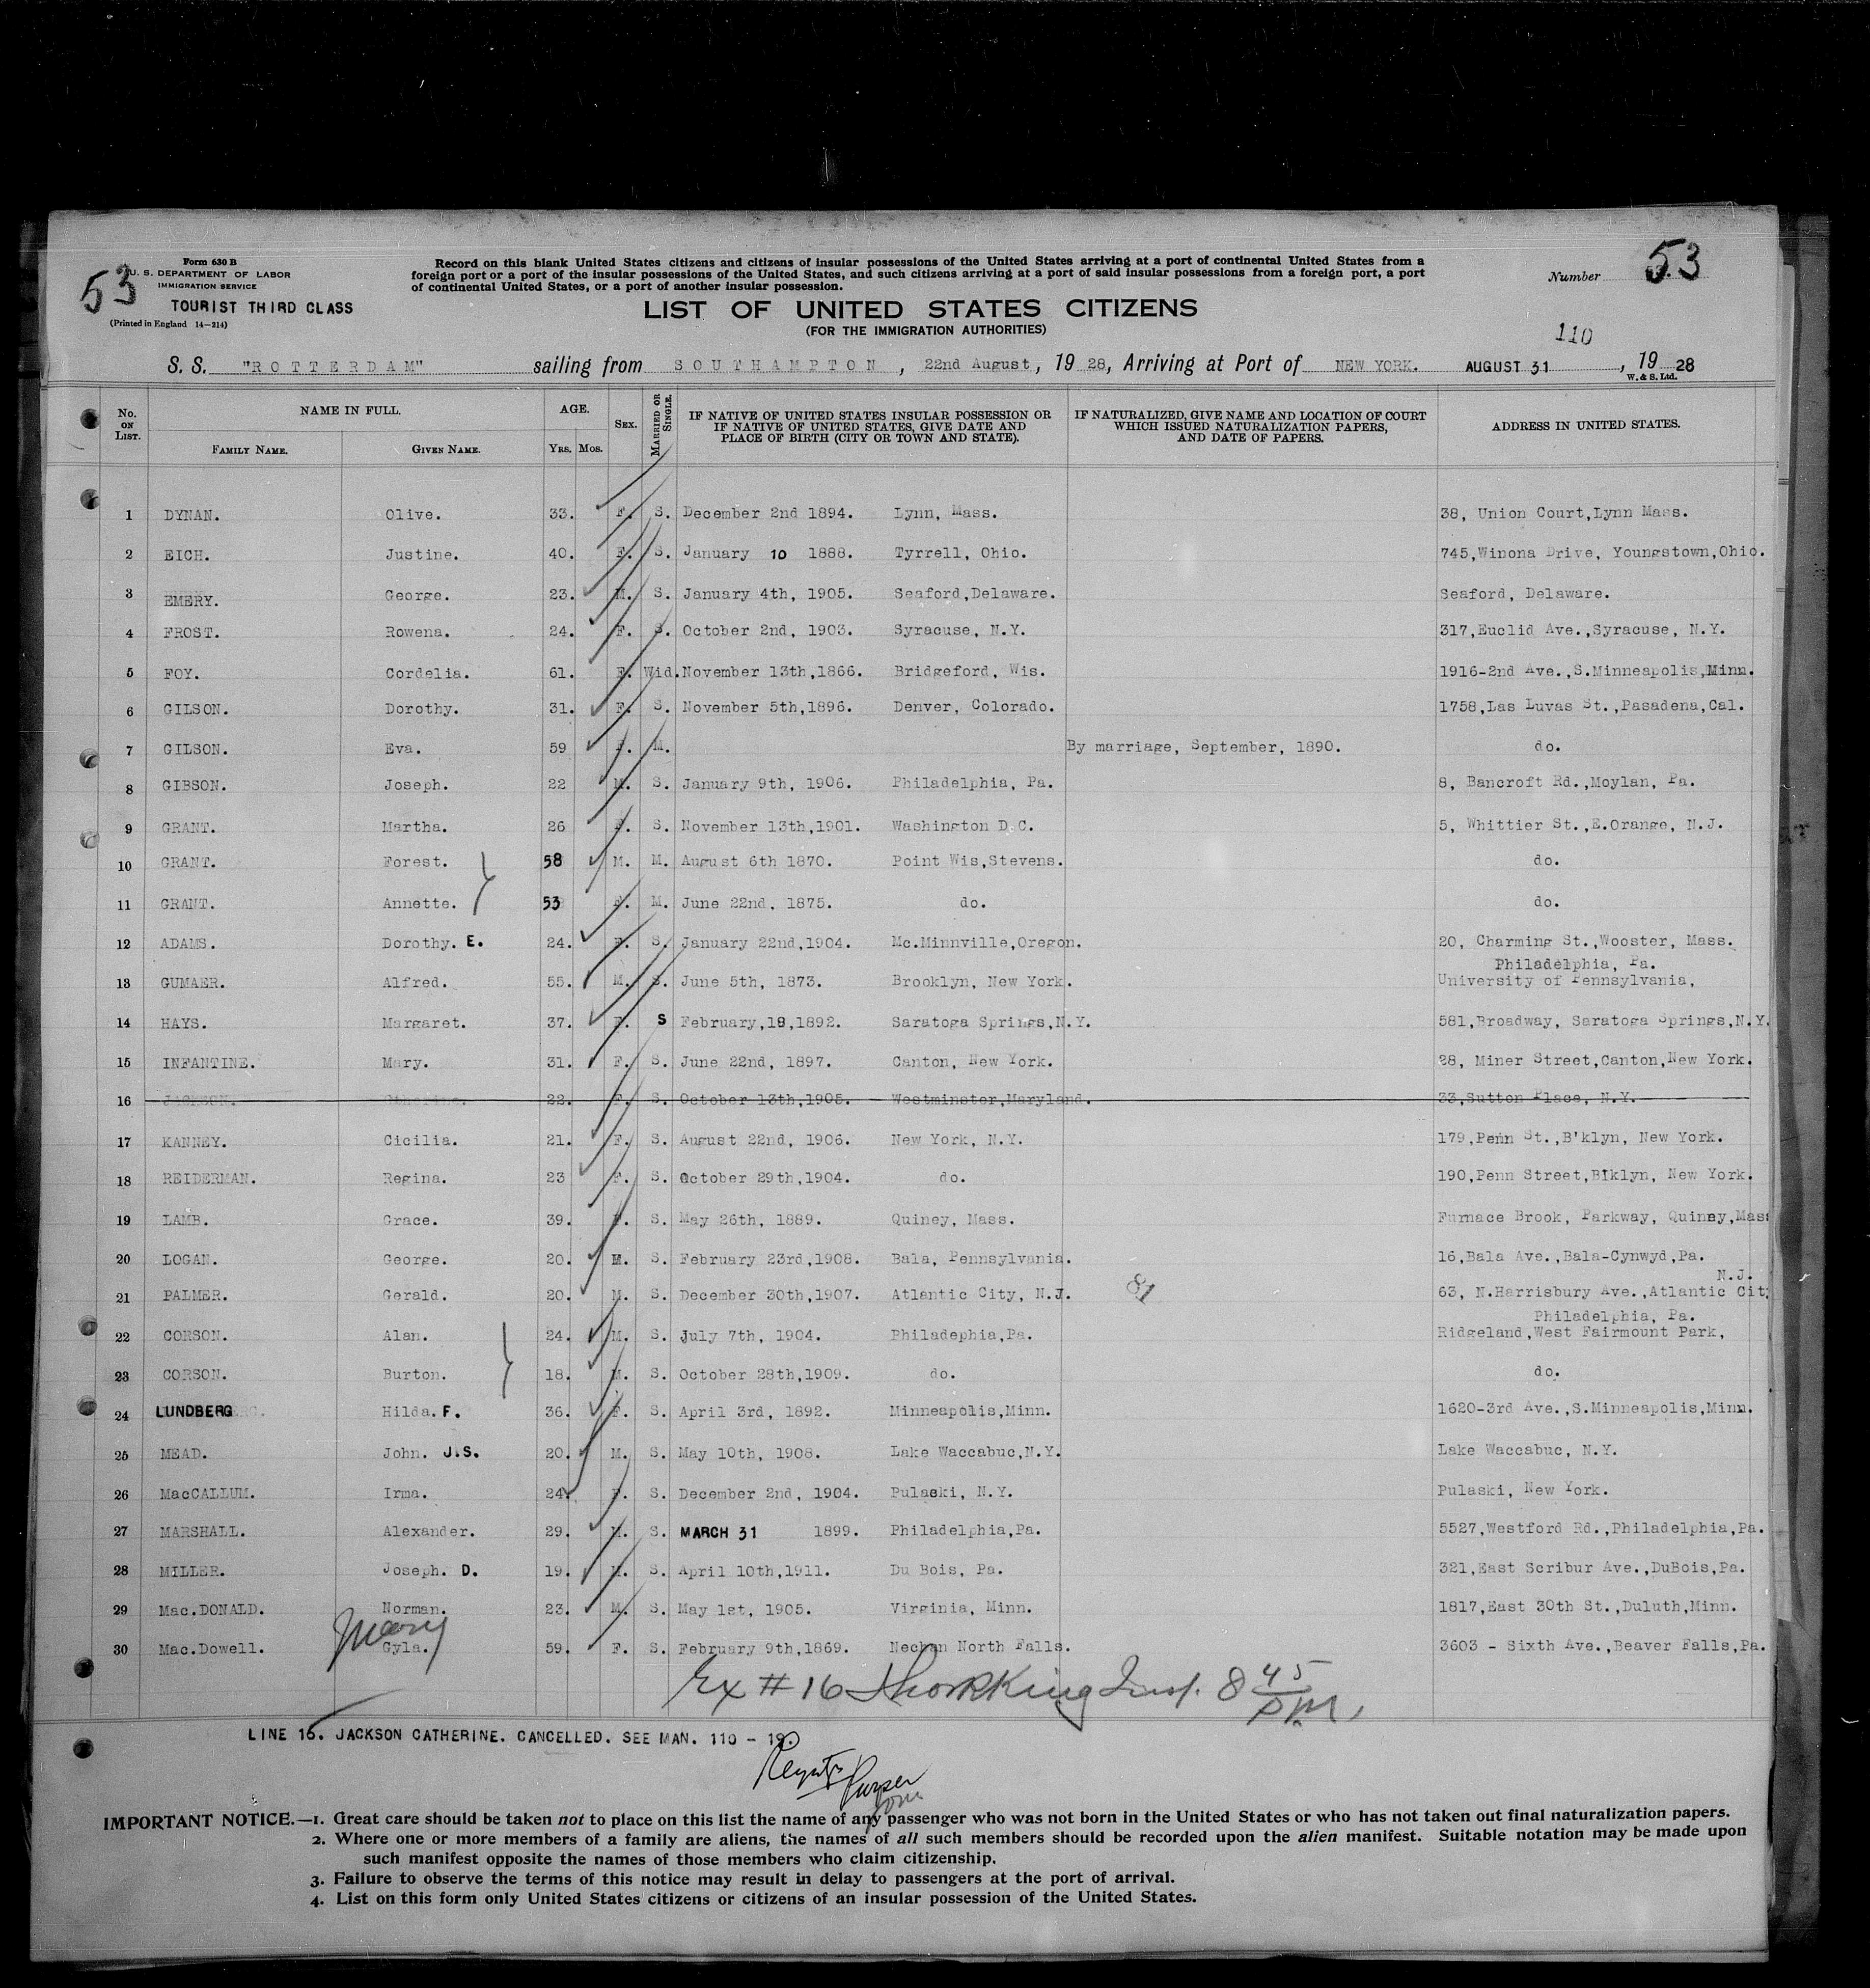 53
Form 630 B
U. S. DEPARTMENT OF LABOR
IMMIGRATION SERVICE
TOURIST THIRD CLASS
(Printed in England 14—214)
Record on this blank United States citizens and citizens of insular possessions of the United States arriving at a port of continental United States from a
foreign port or a port of the insular possessions of the United States, and such citizens arriving at a port of said insular possessions from a foreign port, a port
of continental United States, or a port of another insular possession.
Number 53
LIST OF UNITED STATES CITIZENS
(FOR THE IMMIGRATION AUTHORITIES)
110
S. S. "ROTTERDAM" sailing from SOUTHAMPTON, 22nd August, 19 28, Arriving at Port of NEW YORK. AUGUST 31, 19 28
W. & S. Ltd.
No. ON LIST. NAME IN FULL. FAMILY NAME. GIVEN NAME. AGE. YRS. MOS. SEX. MARRIED OR SINGLE. IF NATIVE OF UNITED STATES INSULAR POSSESSION OR IF NATIVE OF UNITED STATES, GIVE DATE AND PLACE OF BIRTH (CITY OR TOWN AND STATE). IF NATURALIZED, GIVE NAME AND LOCATION OF COURT WHICH ISSUED NATURALIZATION PAPERS, AND DATE OF PAPERS. ADDRESS IN UNITED STATES.
1 DYNAN. Olive. 33. F. S. December 2nd 1894. Lynn, Mass. 38, Union Court,Lynn Mass.
2 EICH. Justine. 40. F. S. January 10 1888. Tyrrell, Ohio. 745,Winona Drive, Youngstown,Ohio.
3 EMERY. George. 23. M. S. January 4th, 1905. Seaford,Delaware. Seaford, Delaware.
4 FROST. Rowena. 24. F. S. October 2nd, 1903. Syracuse, N.Y. 317,Euclid Ave.,Syracuse, N.Y.
5 FOY. Cordelia. 61. F. Wid. November 13th,1866. Bridgeford, Wis. 1916-2nd Ave.,S.Minneapolis,Minn.
6 GILSON. Dorothy. 31. F. S. November 5th,1896. Denver, Colorado. 1758,Las Luvas St.,Pasadena,Cal.
7 GILSON. Eva. 59 F. M. By marriage, September, 1890. do.
8 GIBSON. Joseph. 22 M. S. January 9th, 1906. Philadelphia, Pa. 8, Bancroft Rd.,Moylan, Pa.
9 GRANT. Martha. 26 F. S. November 13th,1901. Washington D.C. 5, Whittier St.,E.Orange, N.J.
10 GRANT. Forest. 58 M. M. August 6th 1870. Point Wis,Stevens. do.
11 GRANT. Annette. 53 F. M. June 22nd, 1875. do. do.
12 ADAMS. Dorothy. E. 24. F. S. January 22nd,1904. Mc.Minnville,Oregon. 20, Charming St.,Wooster, Mass.
Philadelphia, Pa.
13 GUMAER. Alfred. 55. M. S. June 5th, 1873. Brooklyn, New York. University of Pennsylvania,
14 HAYS. Margaret. 37. F. S February,18,1892. Saratoga Springs,N.Y. 581,Broadway, Saratoga Springs,N.Y.
15 INFANTINE. Mary. 31. F. S. June 22nd, 1897. Canton, New York. 28, Miner Street,Canton,New York.
16 JACKSON. Catherine. 22. F. S. October 13th,1905. Westminster,Maryland. 33,Sutton Place, N.Y.
17 KANNEY. Cicilia. 21. F. S. August 22nd, 1906. New York, N.Y. 179,Penn St.,B'klyn, New York.
18 REIDERMAN. Regina. 23 F. S. October 29th,1904. do. 190,Penn Street,B'klyn, New York.
19 LAMB. Grace. 39. F. S. May 26th, 1889. Quincy, Mass. Furnace Brook, Parkway, Quinny,Mass
20 LOGAN. George. 20. M. S. February 23rd,1908. Bala, Pennsylvania. 16,Bala Ave.,Bala-Cynwyd,Pa.
N.J.
21 PALMER. Gerald. 20. M. S. December 30th,1907. Atlantic City, N.J. 81 63, N.Harrisbury Ave.,Atlantic City
Philadelphia, Pa.
22 CORSON. Alan. 24. M. S. July 7th, 1904. Philadephia,Pa. Ridgeland,West Fairmount Park,
23 CORSON. Burton. 18. M. S. October 28th,1909. do. do.
24 LUNDBERG Hilda. F. 36. F. S. April 3rd, 1892. Minneapolis,Minn. 1620-3rd Ave.,S.Minneapolis,Minn.
25 MEAD. John. J.S. 20. M. S. May 10th, 1908. Lake Waccabuc,N.Y. Lake Waccabuc, N.Y.
26 MacCALLUM. Irma. 24 F. S. December 2nd, 1904. Pulaski, N.Y. Pulaski, New York.
27 MARSHALL. Alexander. 29. M. S. MARCH 31 1899. Philadelphia,Pa. 5527,Westford Rd.,Philadelphia,Pa.
28 MILLER. Joseph. D. 19. M. S. April 10th,1911. Du Bois, Pa. 321,East Scribur Ave.,DuBois,Pa.
29 Mac.DONALD. Norman. 23. M. S. May 1st, 1905. Virginia, Minn. 1817,East 30th St.,Duluth,Minn.
Mary
30 Mac.Dowell. Gyla. 59. F. S. February 9th,1869. Nechan North Falls. 3603 - Sixth Ave.,Beaver Falls,Pa.
Ex # 16 Insp. 8 45 P.M.
LINE 16. JACKSON CATHERINE. CANCELLED. SEE MAN. 110 - 19.
Purser
IMPORTANT NOTICE.—1. Great care should be taken not to place on this list the name of any passenger who was not born in the United States or who has not taken out final naturalization papers.
2. Where one or more members of a family are aliens, the names of all such members should be recorded upon the alien manifest. Suitable notation may be made upon
such manifest opposite the names of those members who claim citizenship.
3. Failure to observe the terms of this notice may result in delay to passengers at the port of arrival.
4. List on this form only United States citizens or citizens of an insular possession of the United States.